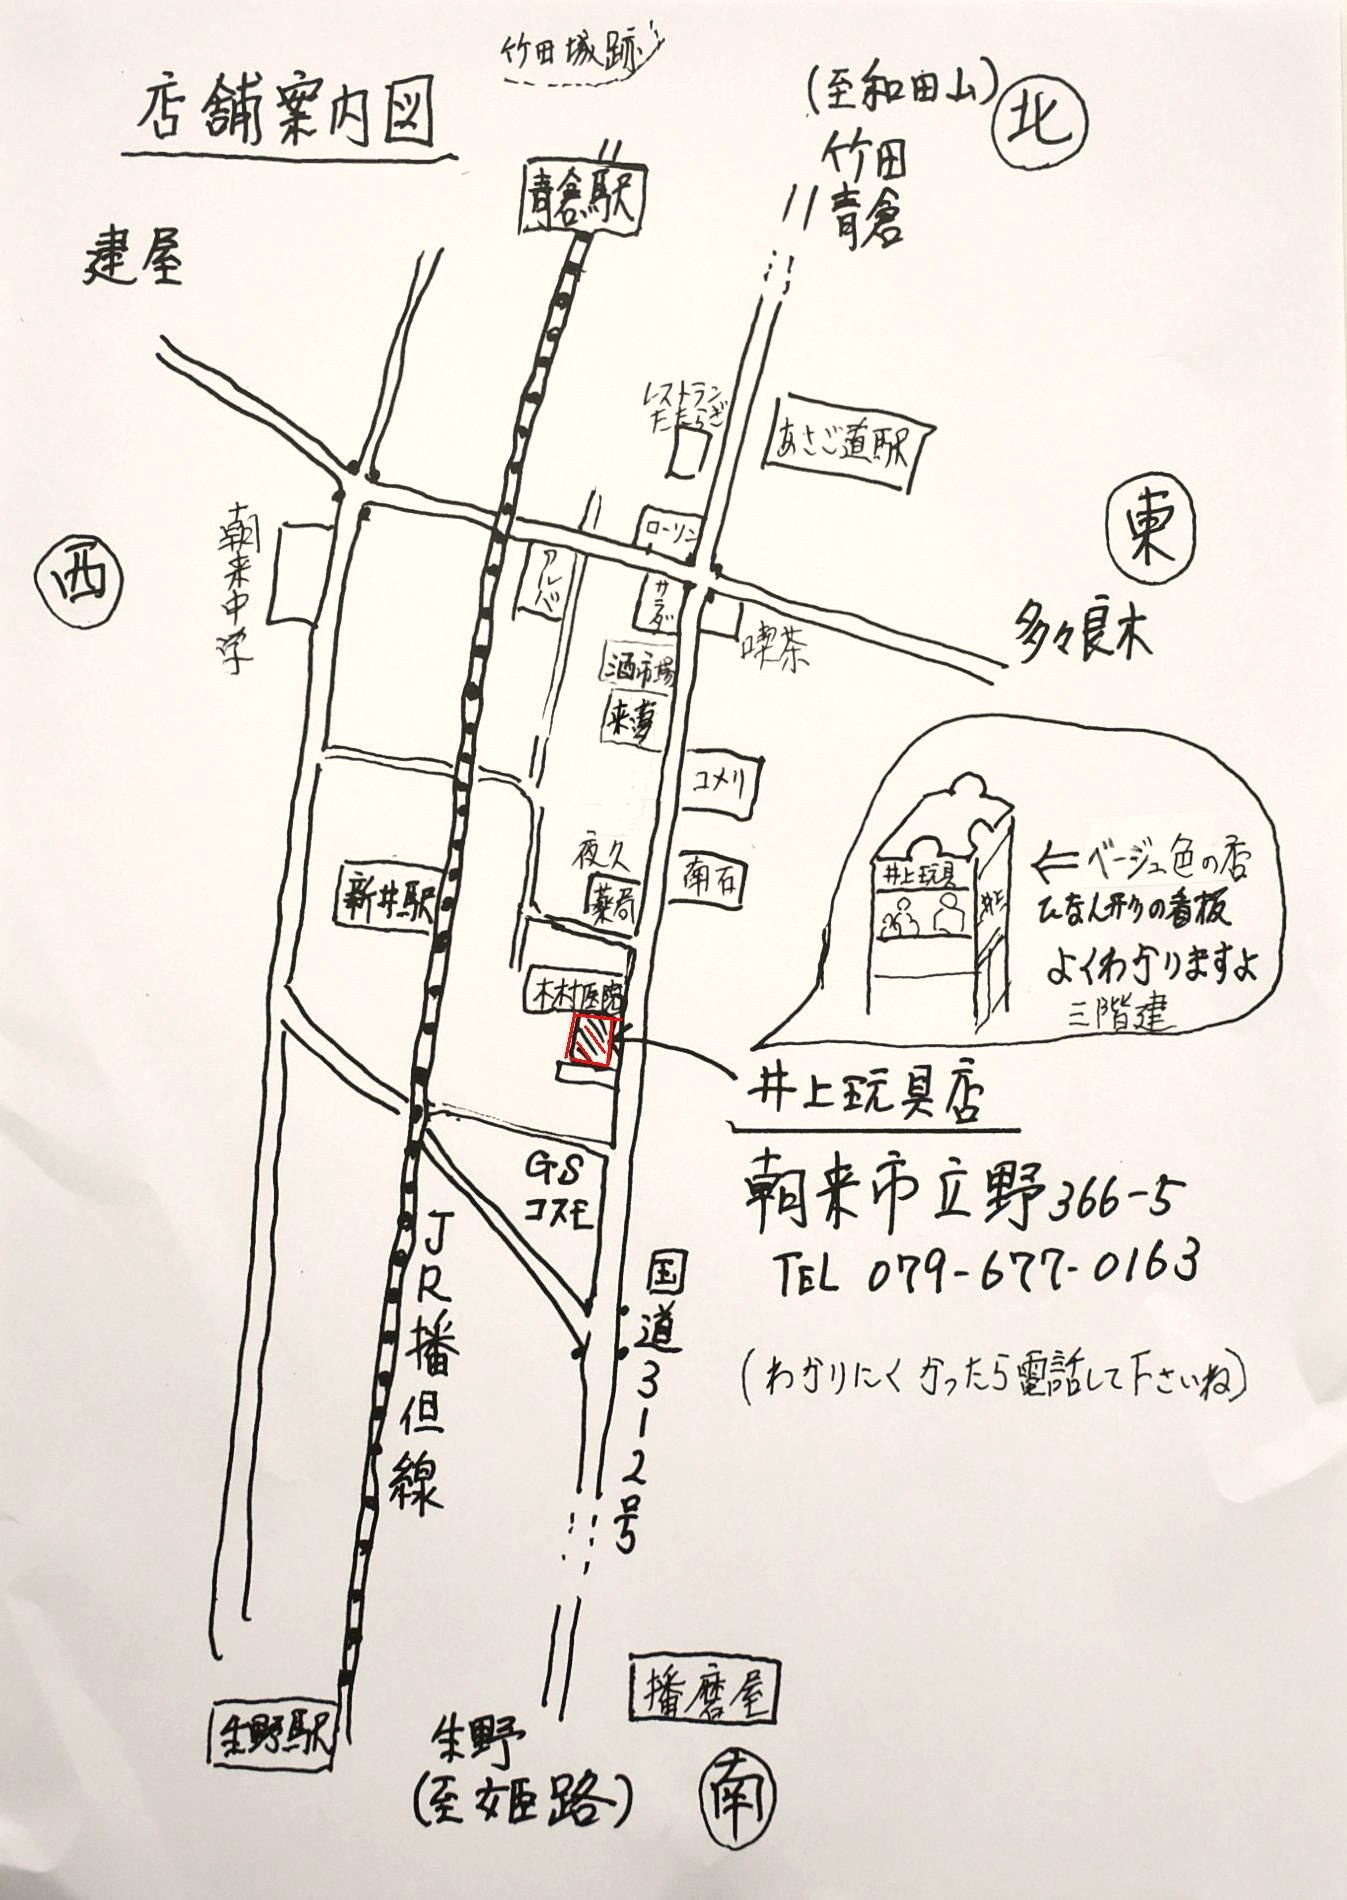 竹田城跡
店舗案内図
(至和田山)
北
竹田
青倉
青倉駅
建屋
レストラン
たたらぎ
あさご道駅
東
西
朝来中学
ローソン
アルバ
サラダ
喫茶
多々良木
酒市場
来夢
コメリ
夜久
薬局
南石
新井駅
井上玩具
井上
←ベージュ色の店
ひな人形の看板
よくわかりますよ
三階建
木村医院
井上玩具店
朝来市立野366-5
TEL 079-677-0163
GS
コスモ
JR播但線
国道312号
(わかりにくかったら電話して下さいね)
播磨屋
生野駅
生野
(至姫路)
南